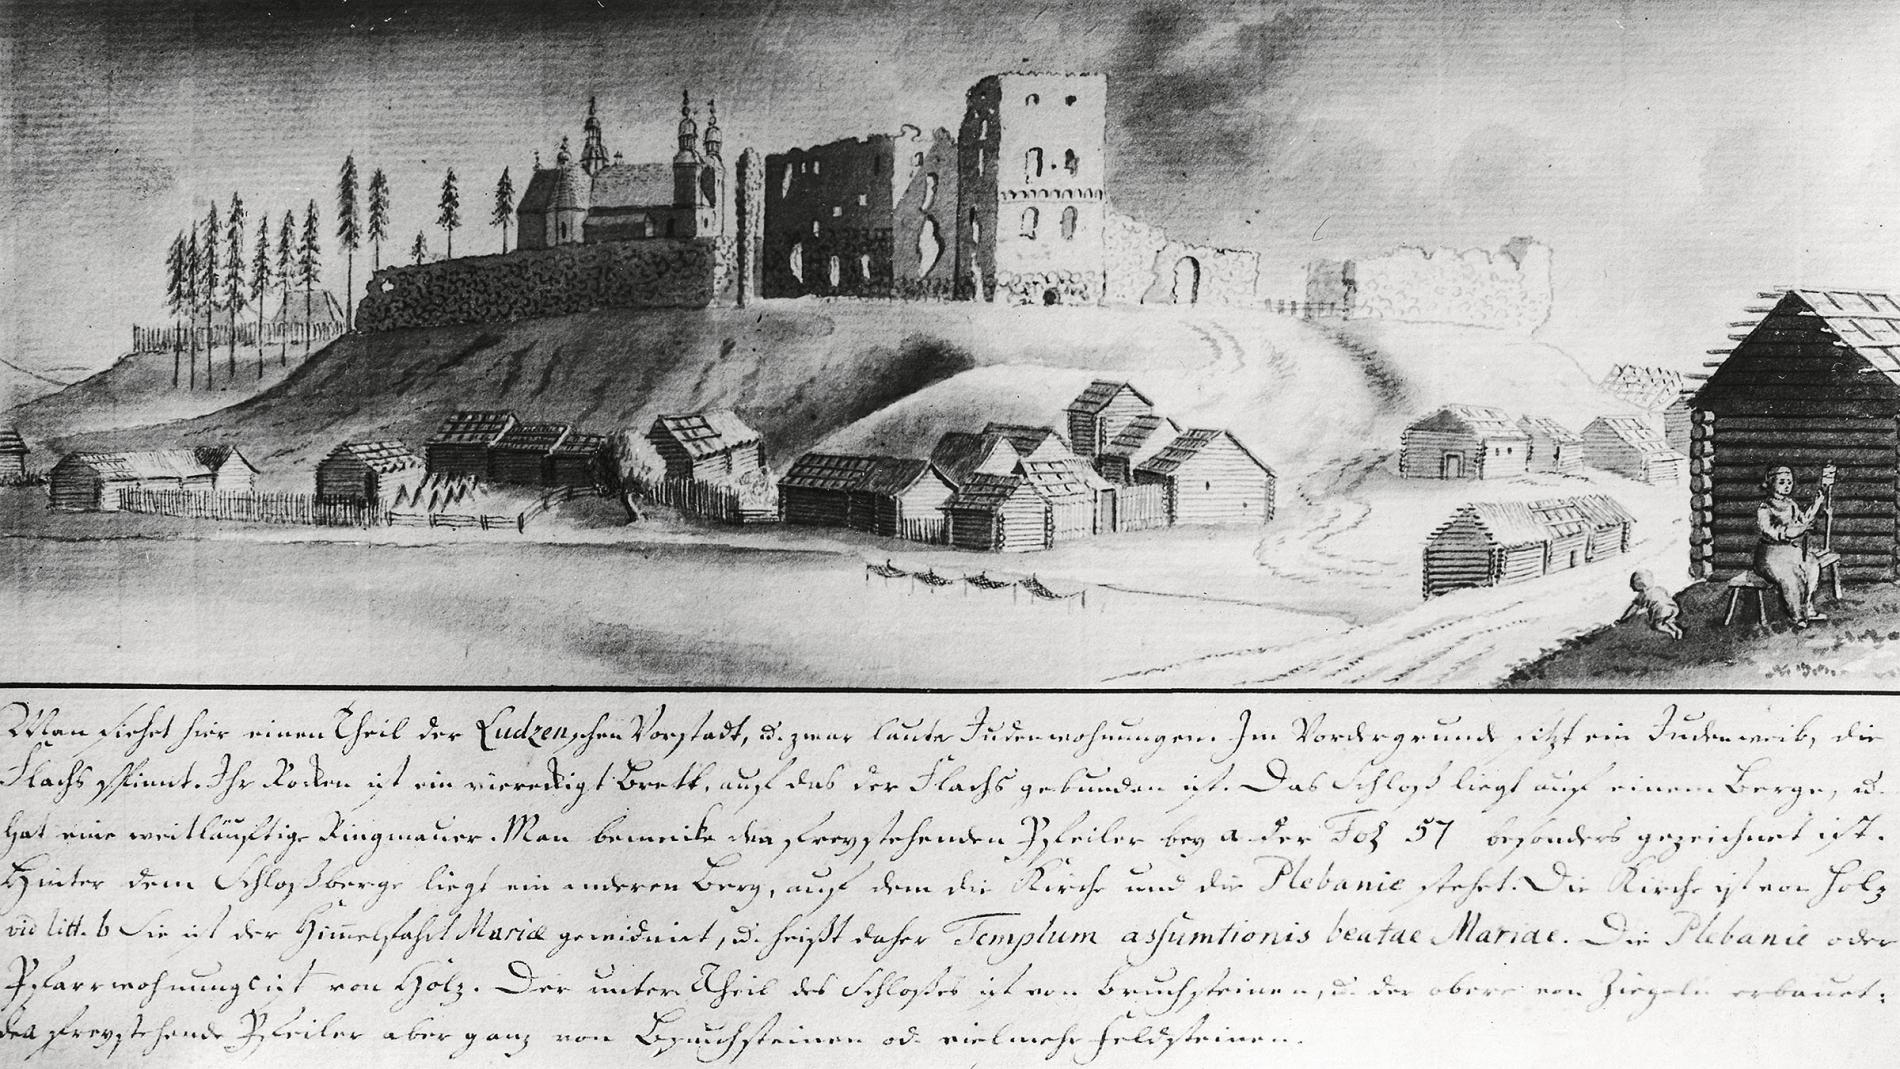 Man siehet hier einen Theil der Ludzenschen Vorstadt, u. zwar lauter Judenwohnungen. Im Vordergrunde sitzt ein Judenweib, die
Flachs spinnt. Ihr Rocken ist ein viereckigt Brett, auf das der Flachs gebunden ist. Das Schloß liegt auf einem Berge, u.
hat eine weitläuftige Ringmauer. Man bemerke den freystehenden Pfeiler bey a der Fol 57 besonders gezeichnet ist.
Hinter dem Schloßberge liegt ein anderer Berg, auf dem die Kirche und die Plebanie stehet. Die Kirche ist von Holz
vid litt. b Sie ist der Himelsfahrt Mariæ gewidmet, u. heißt daher Templum assumtionis beatae Mariae. Die Plebanie oder
Pfarrwohnung c ist von Holz. Der untere Theil des Schloßes ist von Bruchsteinen, u. der obere von Ziegeln erbauet:
der freystehende Pfeiler aber ganz von Bruchsteinen od. vielmehr Feldsteinen.